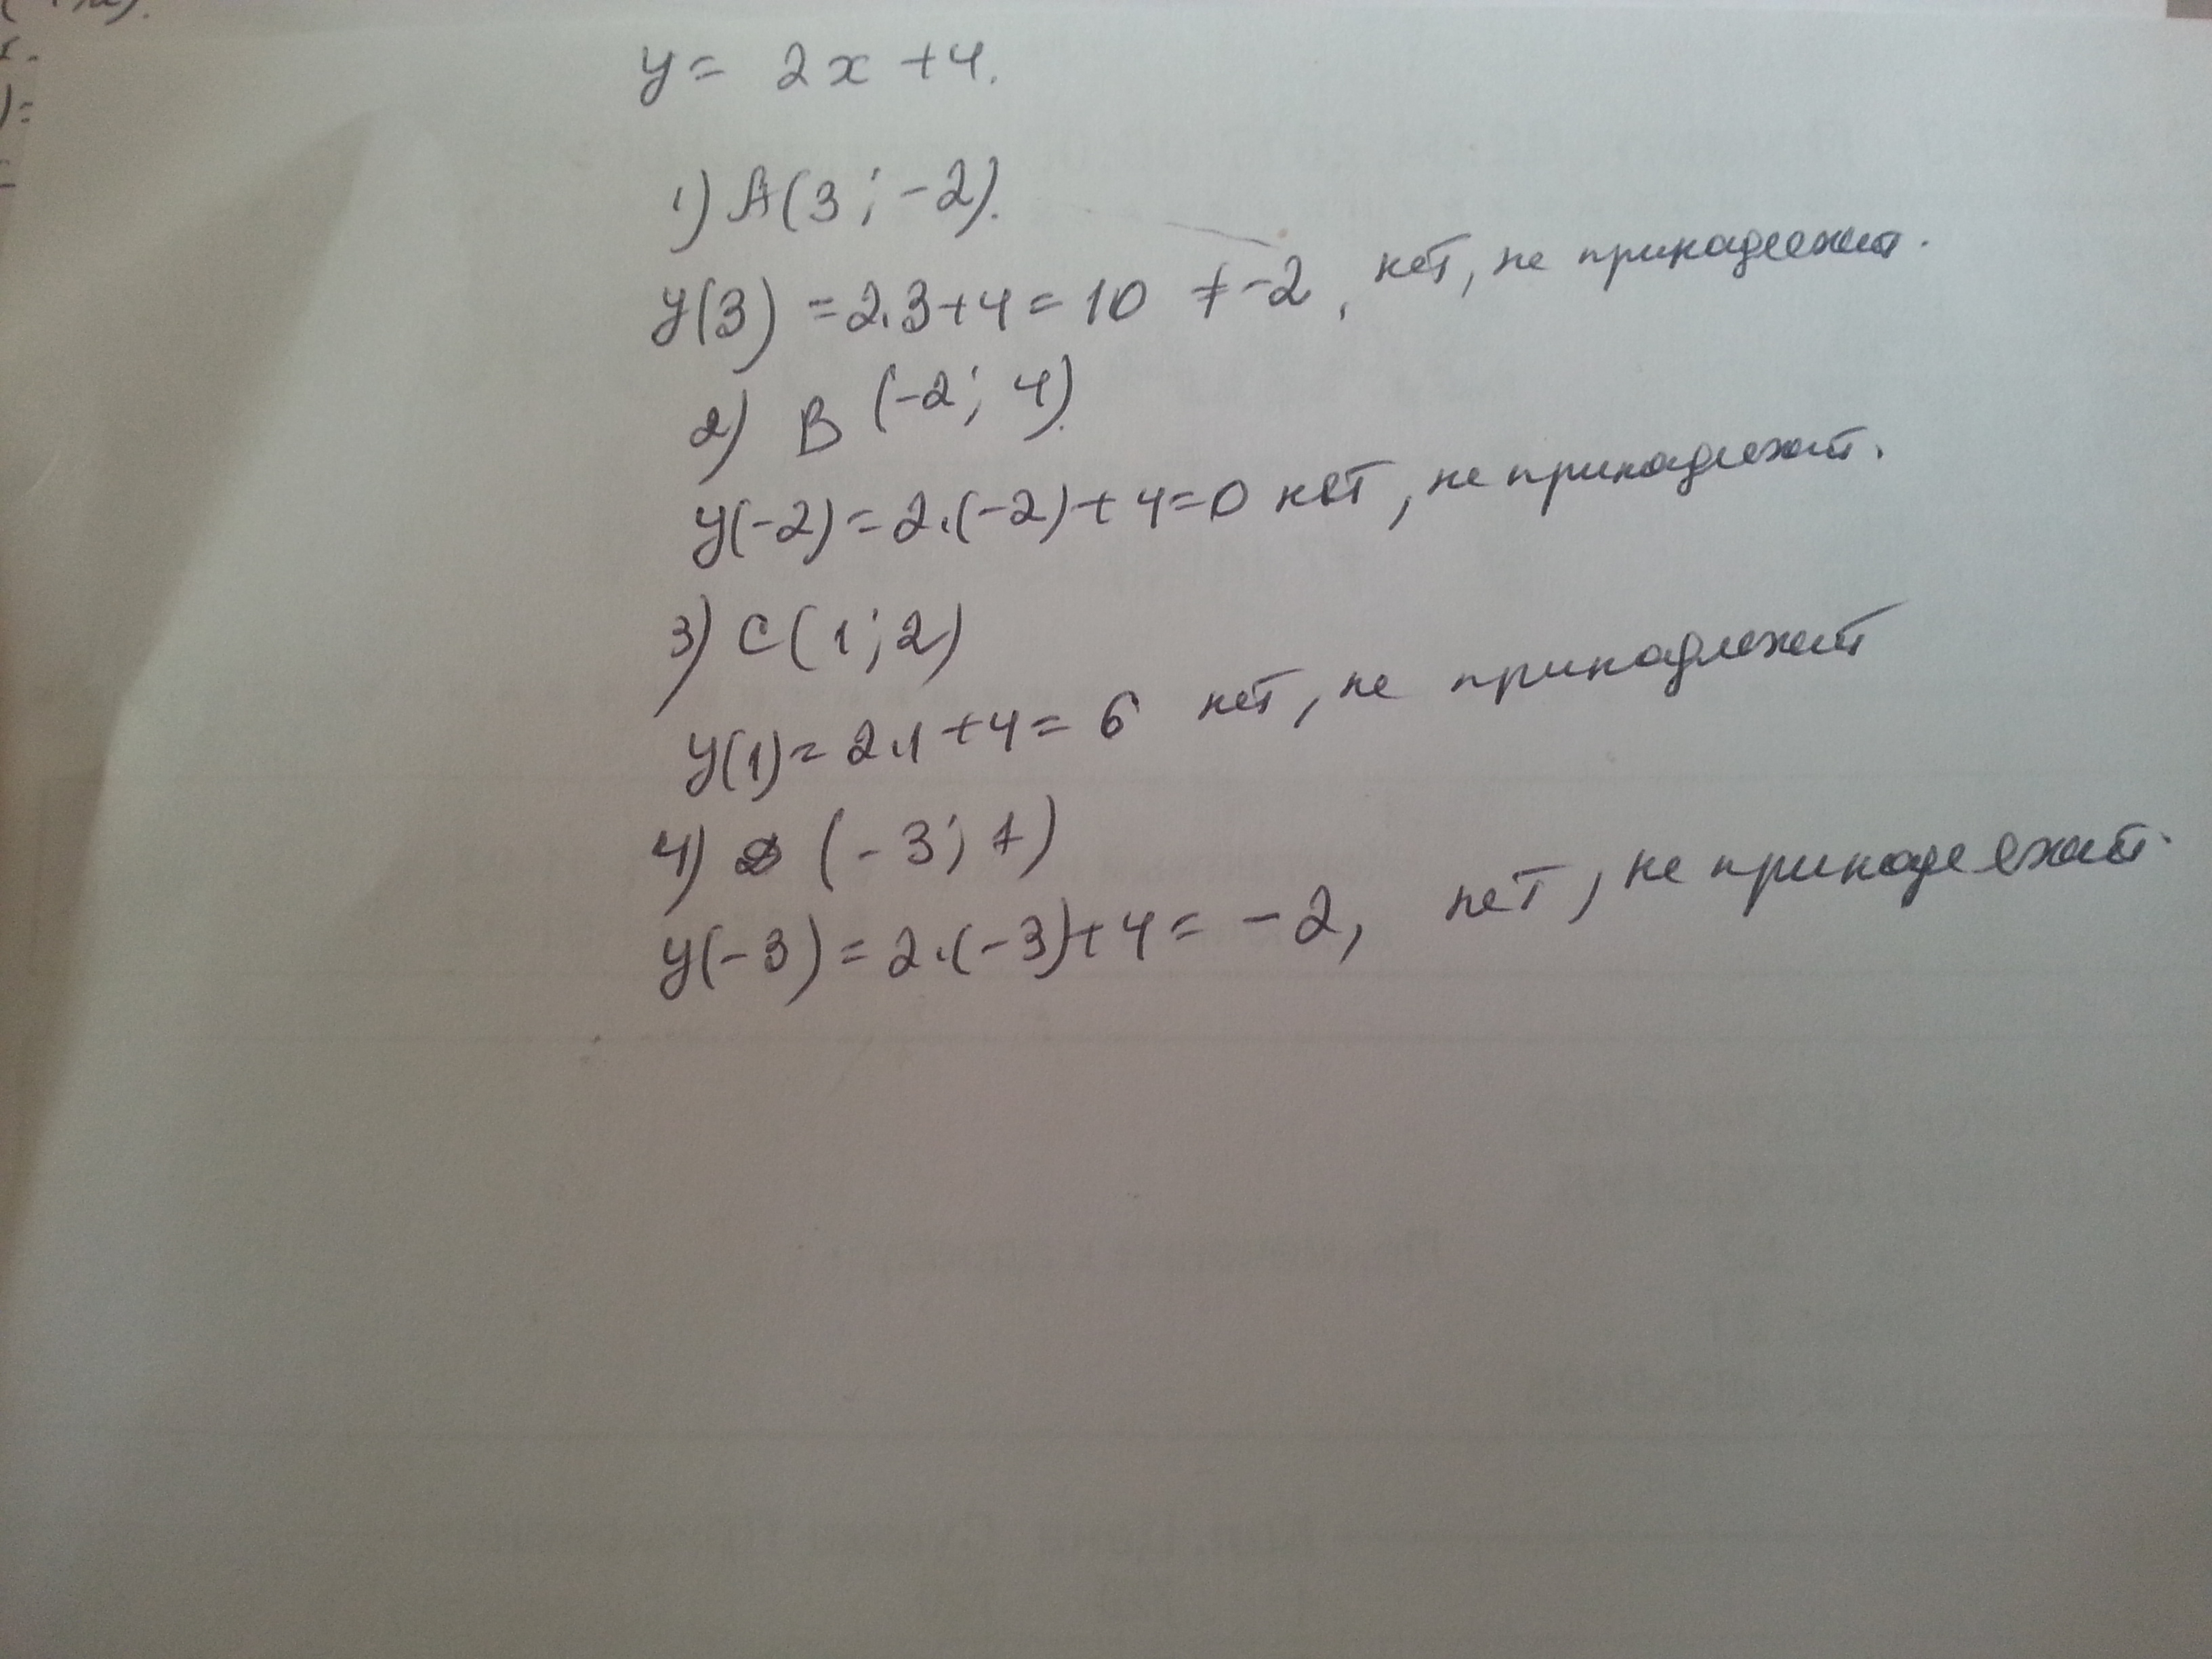 y = 2x + 4.
1) A(3; -2).
y(3) = 2·3+4 = 10 ≠ -2, нет, не принадлежит.
2) B (-2; 4).
y(-2) = 2·(-2)+4=0 нет, не принадлежит.
3) C(1; 2)
y(1) = 2·1+4 = 6 нет, не принадлежит
4) D (-3; 1)
y(-3) = 2·(-3)+4 = -2, нет, не принадлежит.